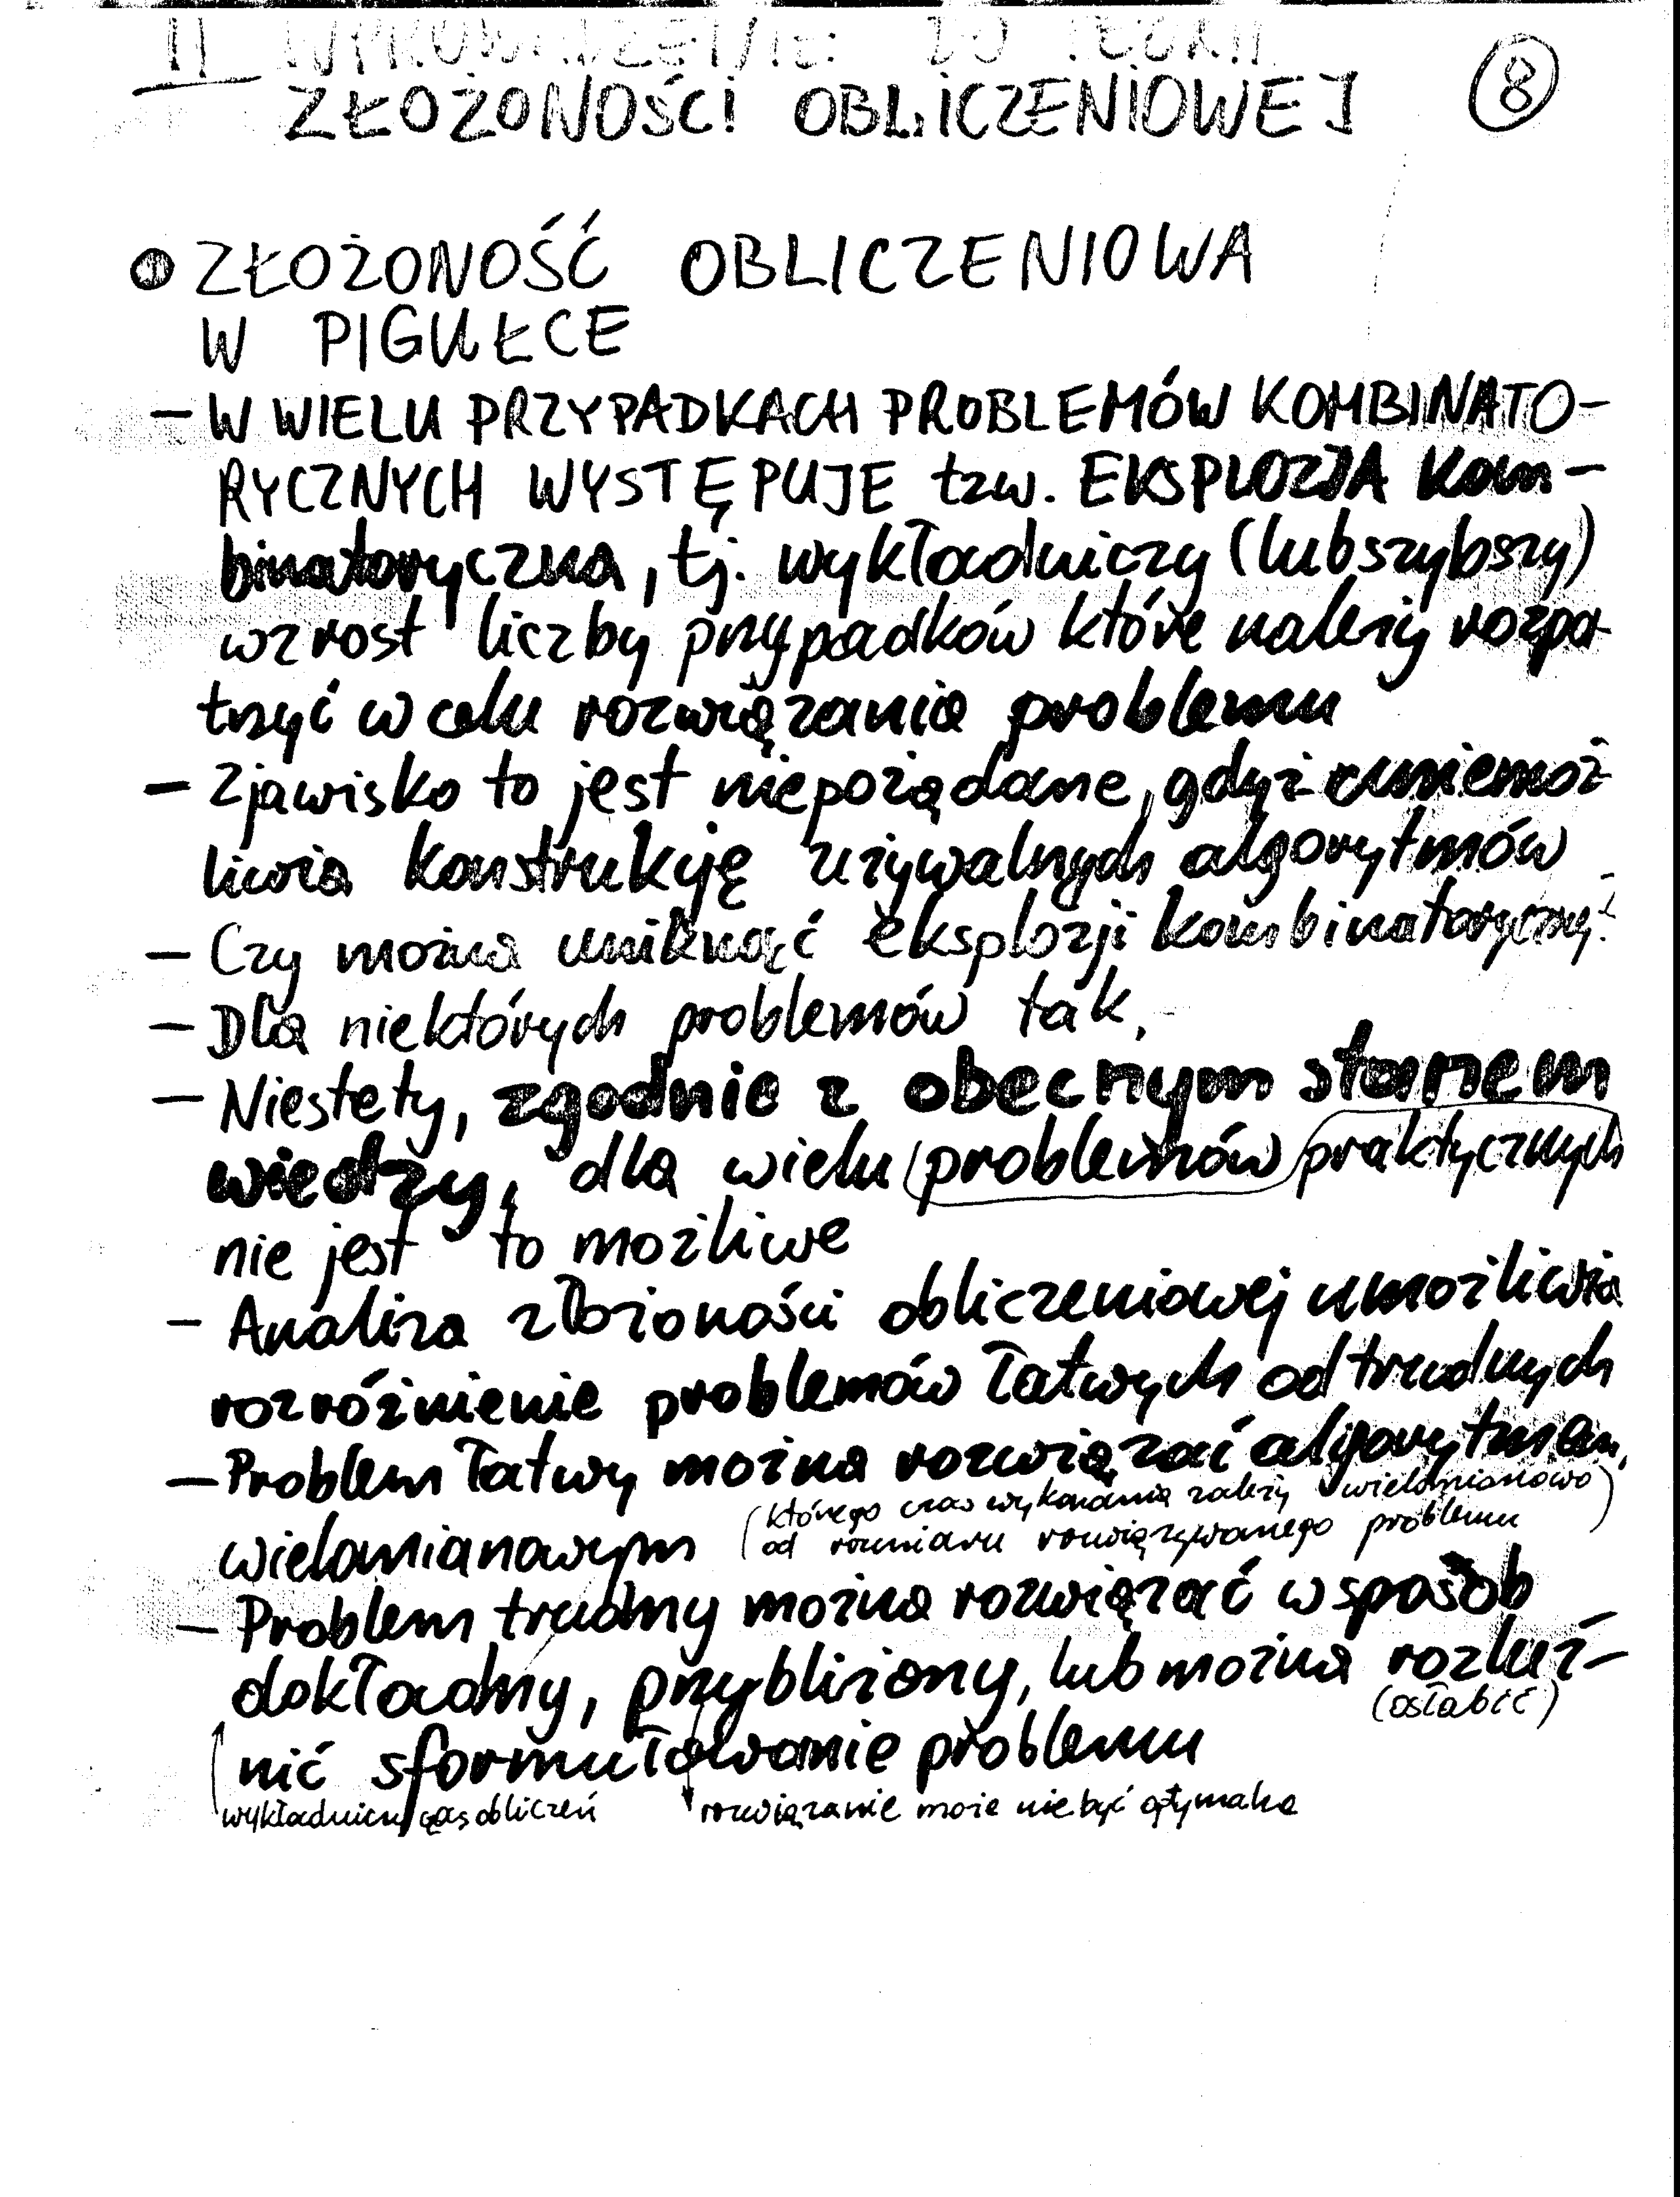 II WPROWADZENIE DO TEORII
ZŁOŻONOŚCI OBLICZENIOWEJ
8
ZŁOŻONOŚĆ OBLICZENIOWA
W PIGUŁCE
- W WIELU PRZYPADKACH PROBLEMÓW KOMBINATO-
RYCZNYCH WYSTĘPUJE tzw. EKSPLOZJA Kom-
binatoryczna, tj. wykładniczy (lub szybszy)
wzrost liczby przypadków które należy rozpa-
trzyć w celu rozwiązania problemu
- Zjawisko to jest niepożądane, gdyż uniemoż-
liwia konstrukję używalnych algorytmów
- Czy można uniknąć eksplozji kombinatorycznej?
- Dla niektórych problemów tak,
- Niestety, zgodnie z obecnym stanem
wiedzy, dla wielu problemów praktycznych
nie jest to możliwe
- Analiza złożoności obliczeniowej umożliwia
rozróżnienie problemów łatwych od trudnych
- Problem łatwy można rozwiązać algorytmem
wielomianowym (którego czas wykonania zależy wielomianowo
od rozmiaru rozwiązywanego problemu)
- Problem trudny można rozwiązać w sposób
dokładny, przybliżony, lub można rozluź-
(osłabić)
nić sformułowanie problemu
wykładniczy czas obliczeń rozwiązanie może nie być optymalne